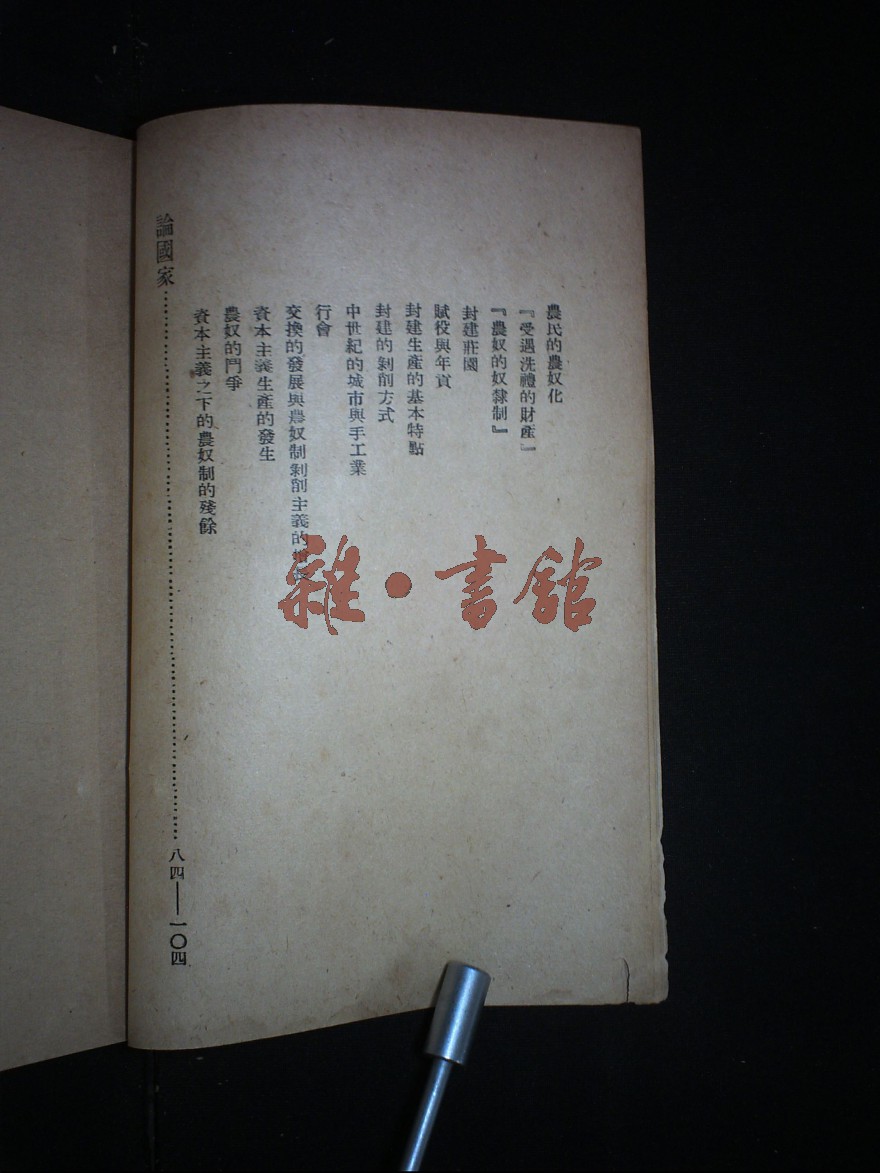 農民的農奴化
『受過洗禮的財產』
『農奴的奴隸制』
封建莊園
賦役與年貢
封建生產的基本特點
封建的剝削方式
中世紀的城市與手工業
行會
交換的發展與農奴制剝削主義的
資本主義生產的發生
農奴的鬥爭
資本主義之下的農奴制的殘餘
論國家……八四——一〇四
雜·書館